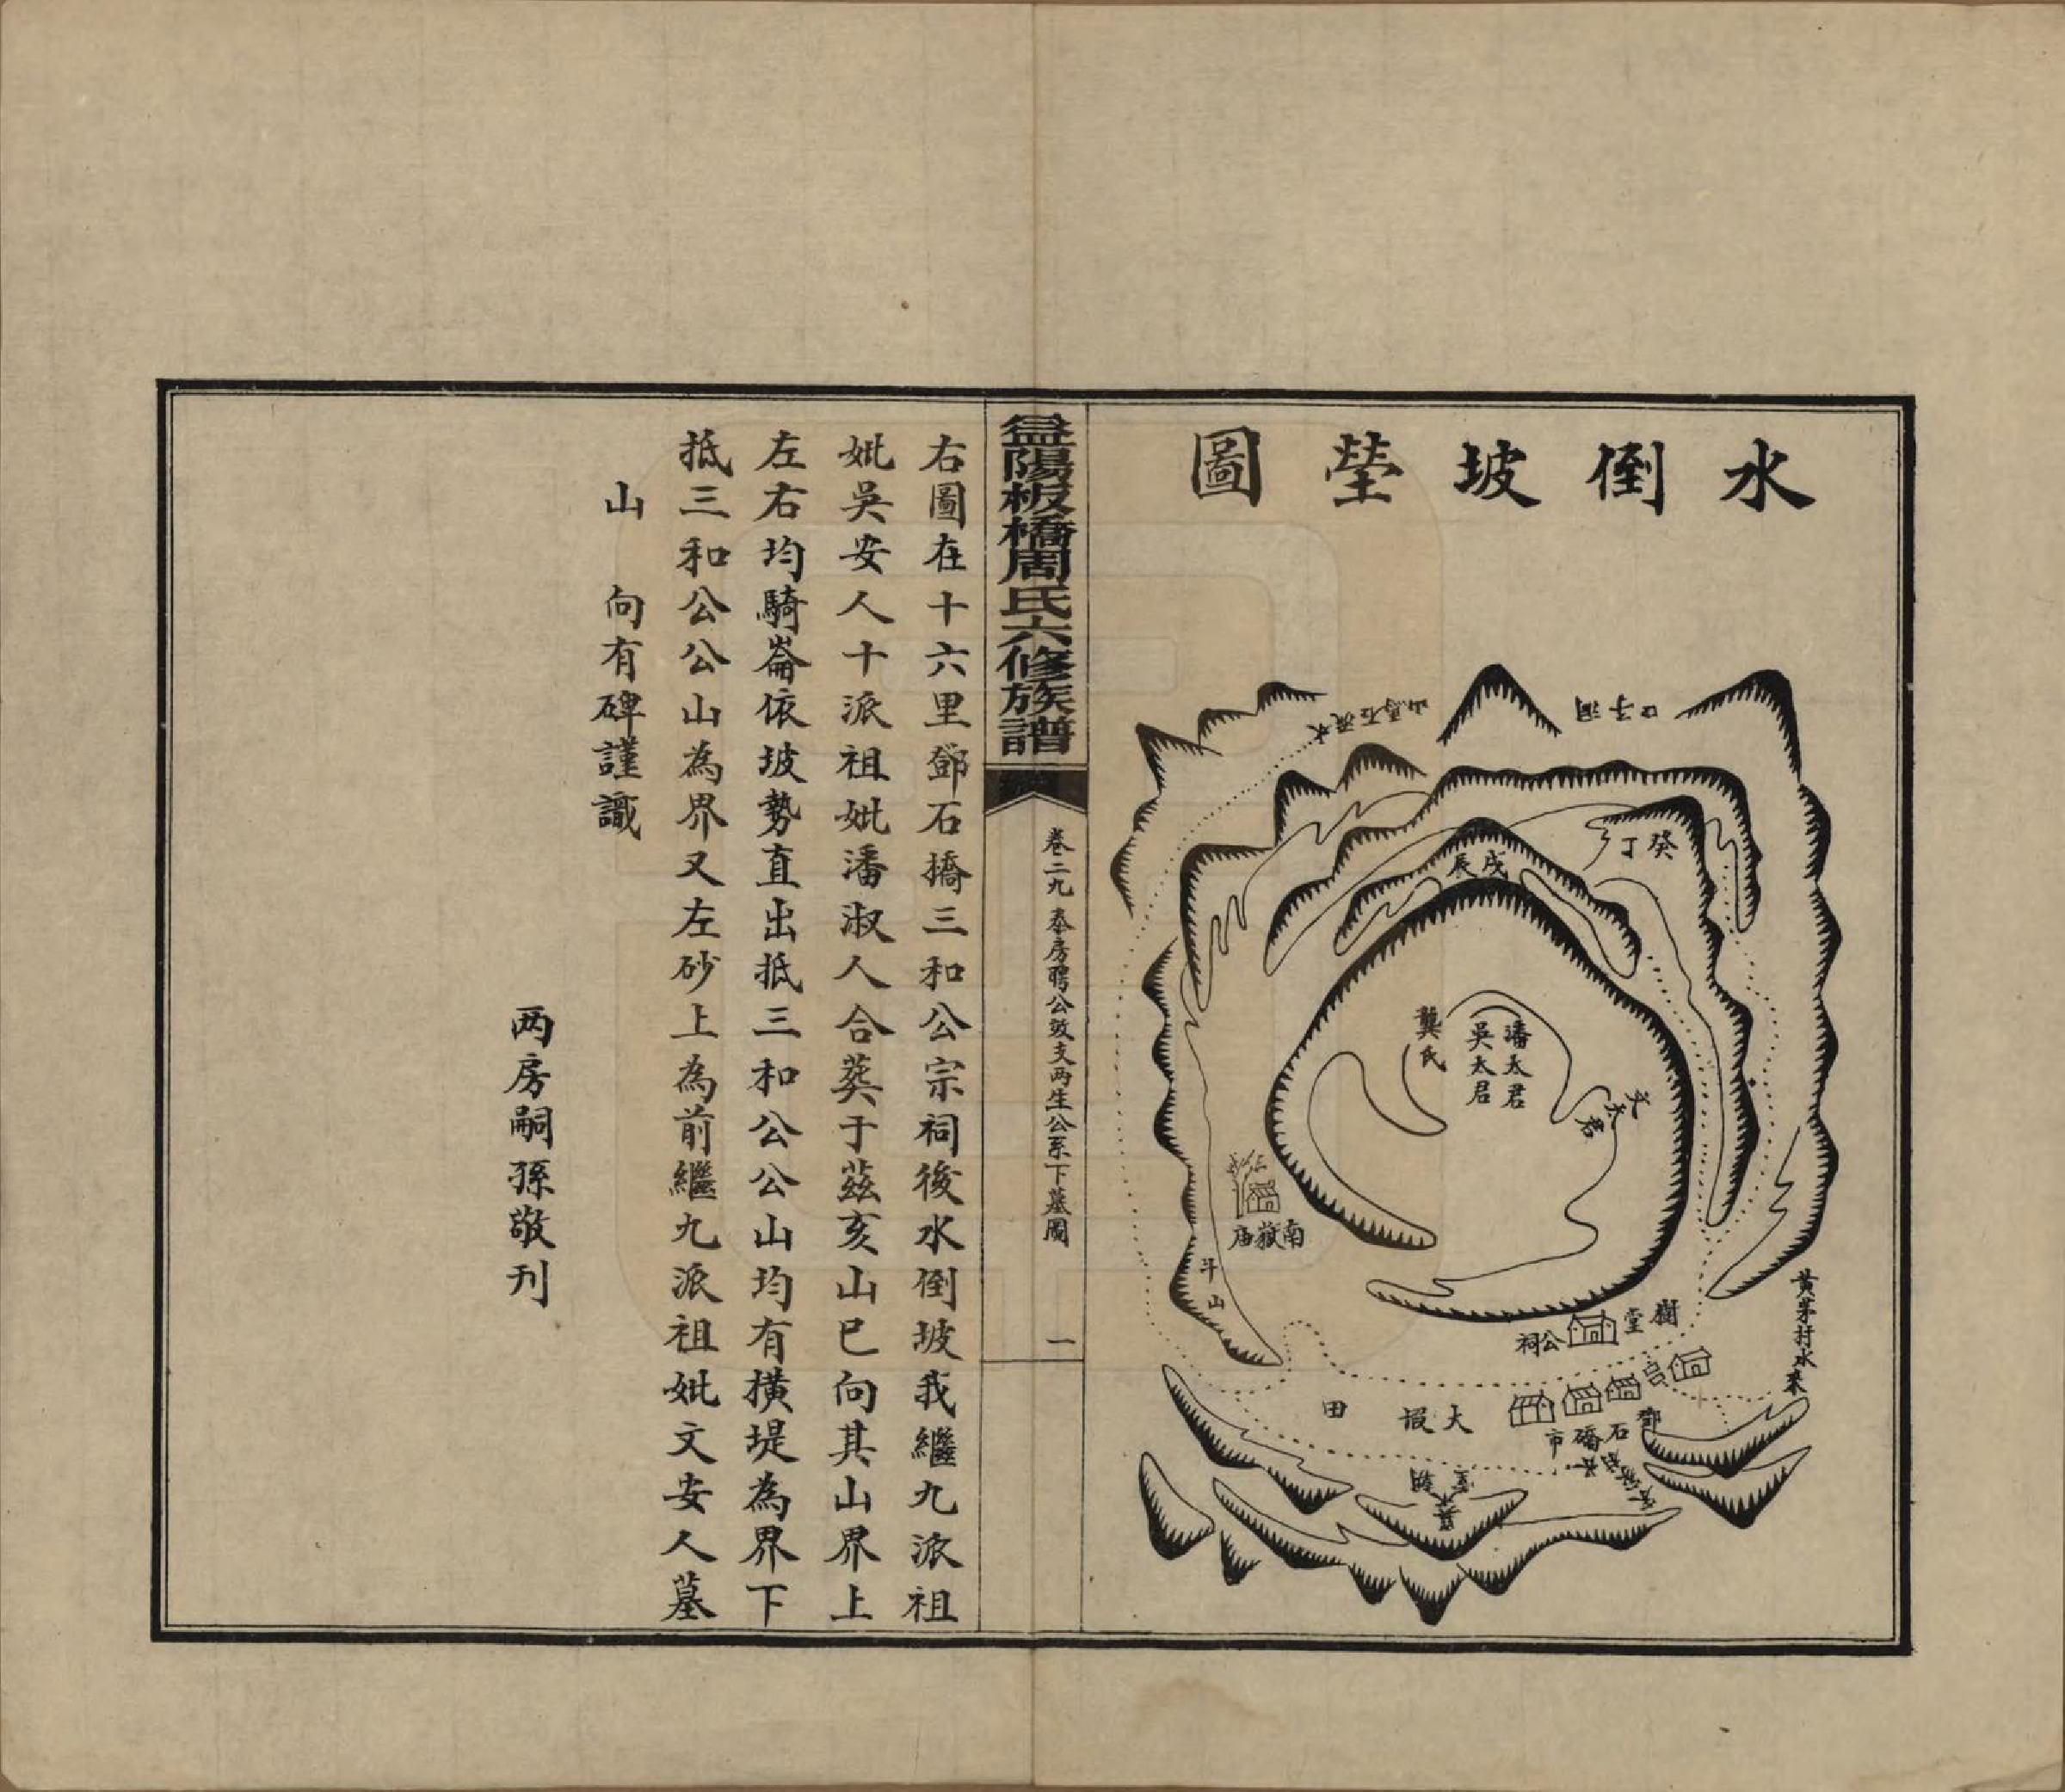 水倒坡塋圖
洞子口
山馬石流水
癸丁
戌辰
潘太君
吳太君
龔氏
文太君
南嶽庙
斗山
黃茅村水來
樹堂公祠
鄧石橋市
大塅田
益陽板橋周氏六修族譜
卷二九 奉房聘公效支两生公系下墓圖
一
右圖在十六里鄧石撟三和公宗祠後水倒坡我繼九派祖
妣吳安人十派祖妣潘淑人合葬于茲亥山巳向其山界上
左右均騎崙依坡勢直出抵三和公公山均有横堤為界下
抵三和公公山為界又左砂上為前繼九派祖妣文安人墓
山　向有碑謹識
两房嗣孫敬刊